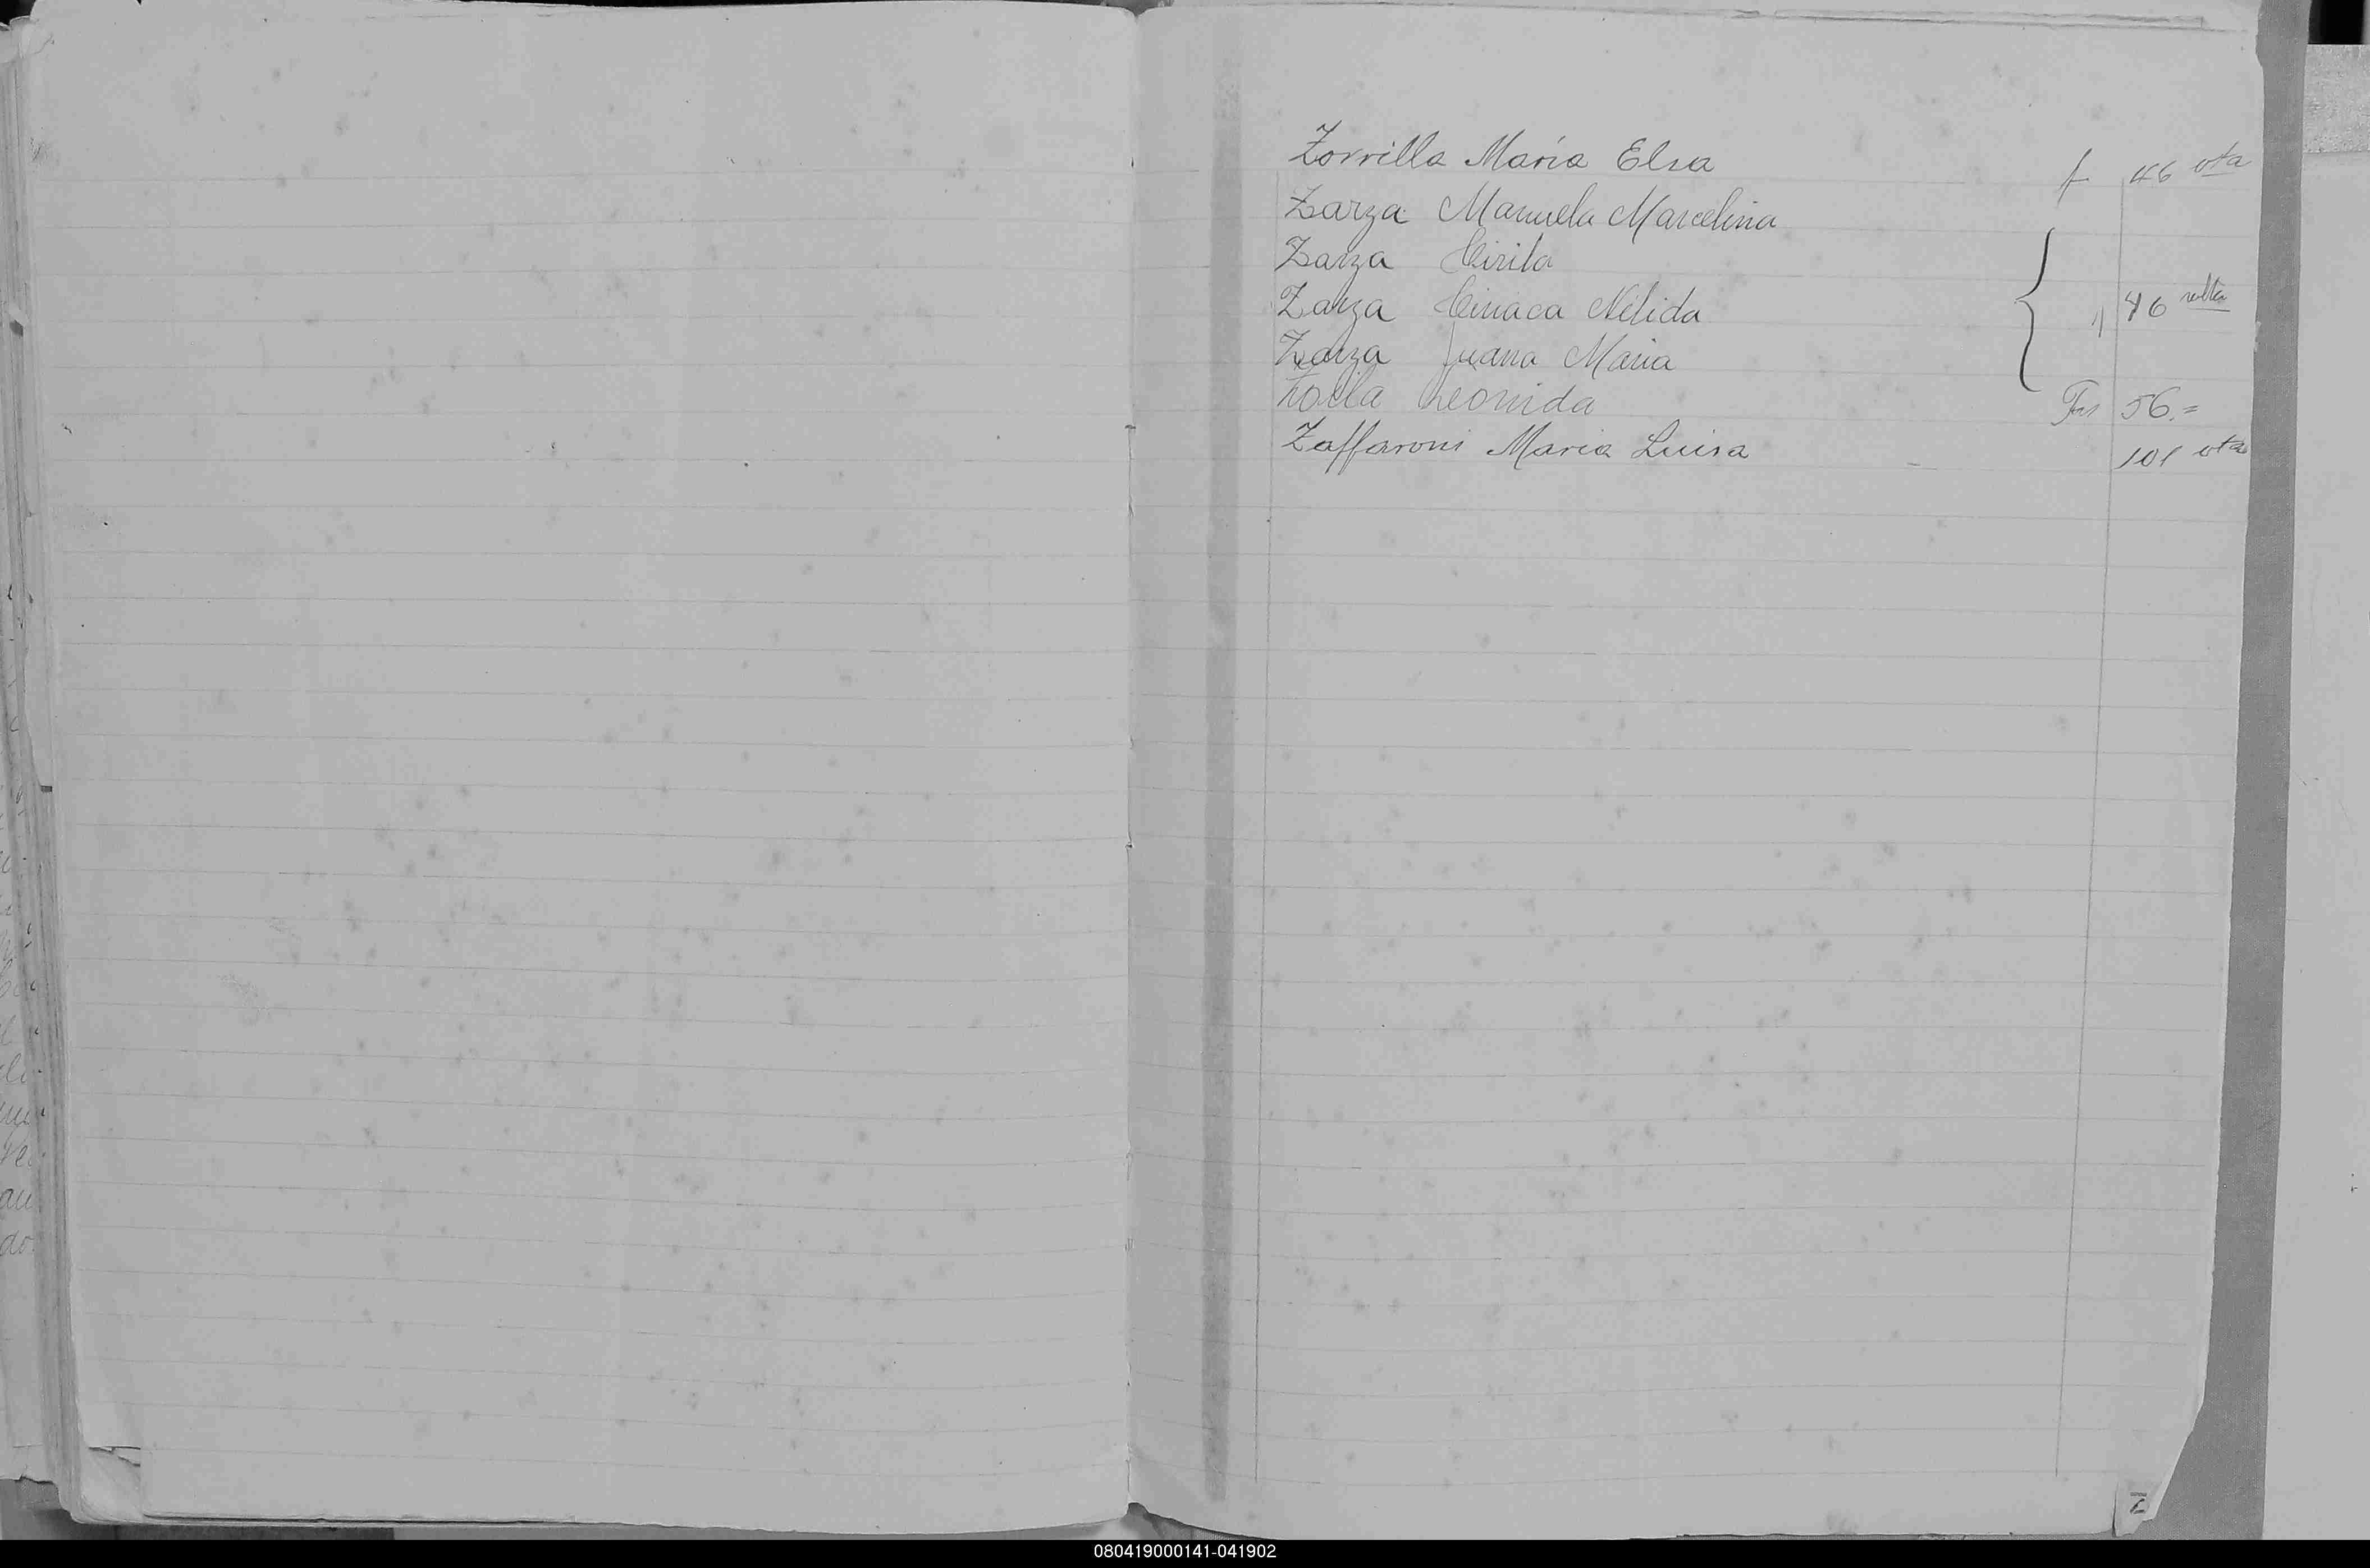 Zorrilla María Elsa f 46 vta
Zarza Manuela Marcelina
Zarza Cirila
Zarza Ciriaca Nélida " 46 vlta
Zarza Juana Maria
Leonida Fas 56.=
Zaffaroni Maria Luisa 101 vta
Z
080419000141-041902